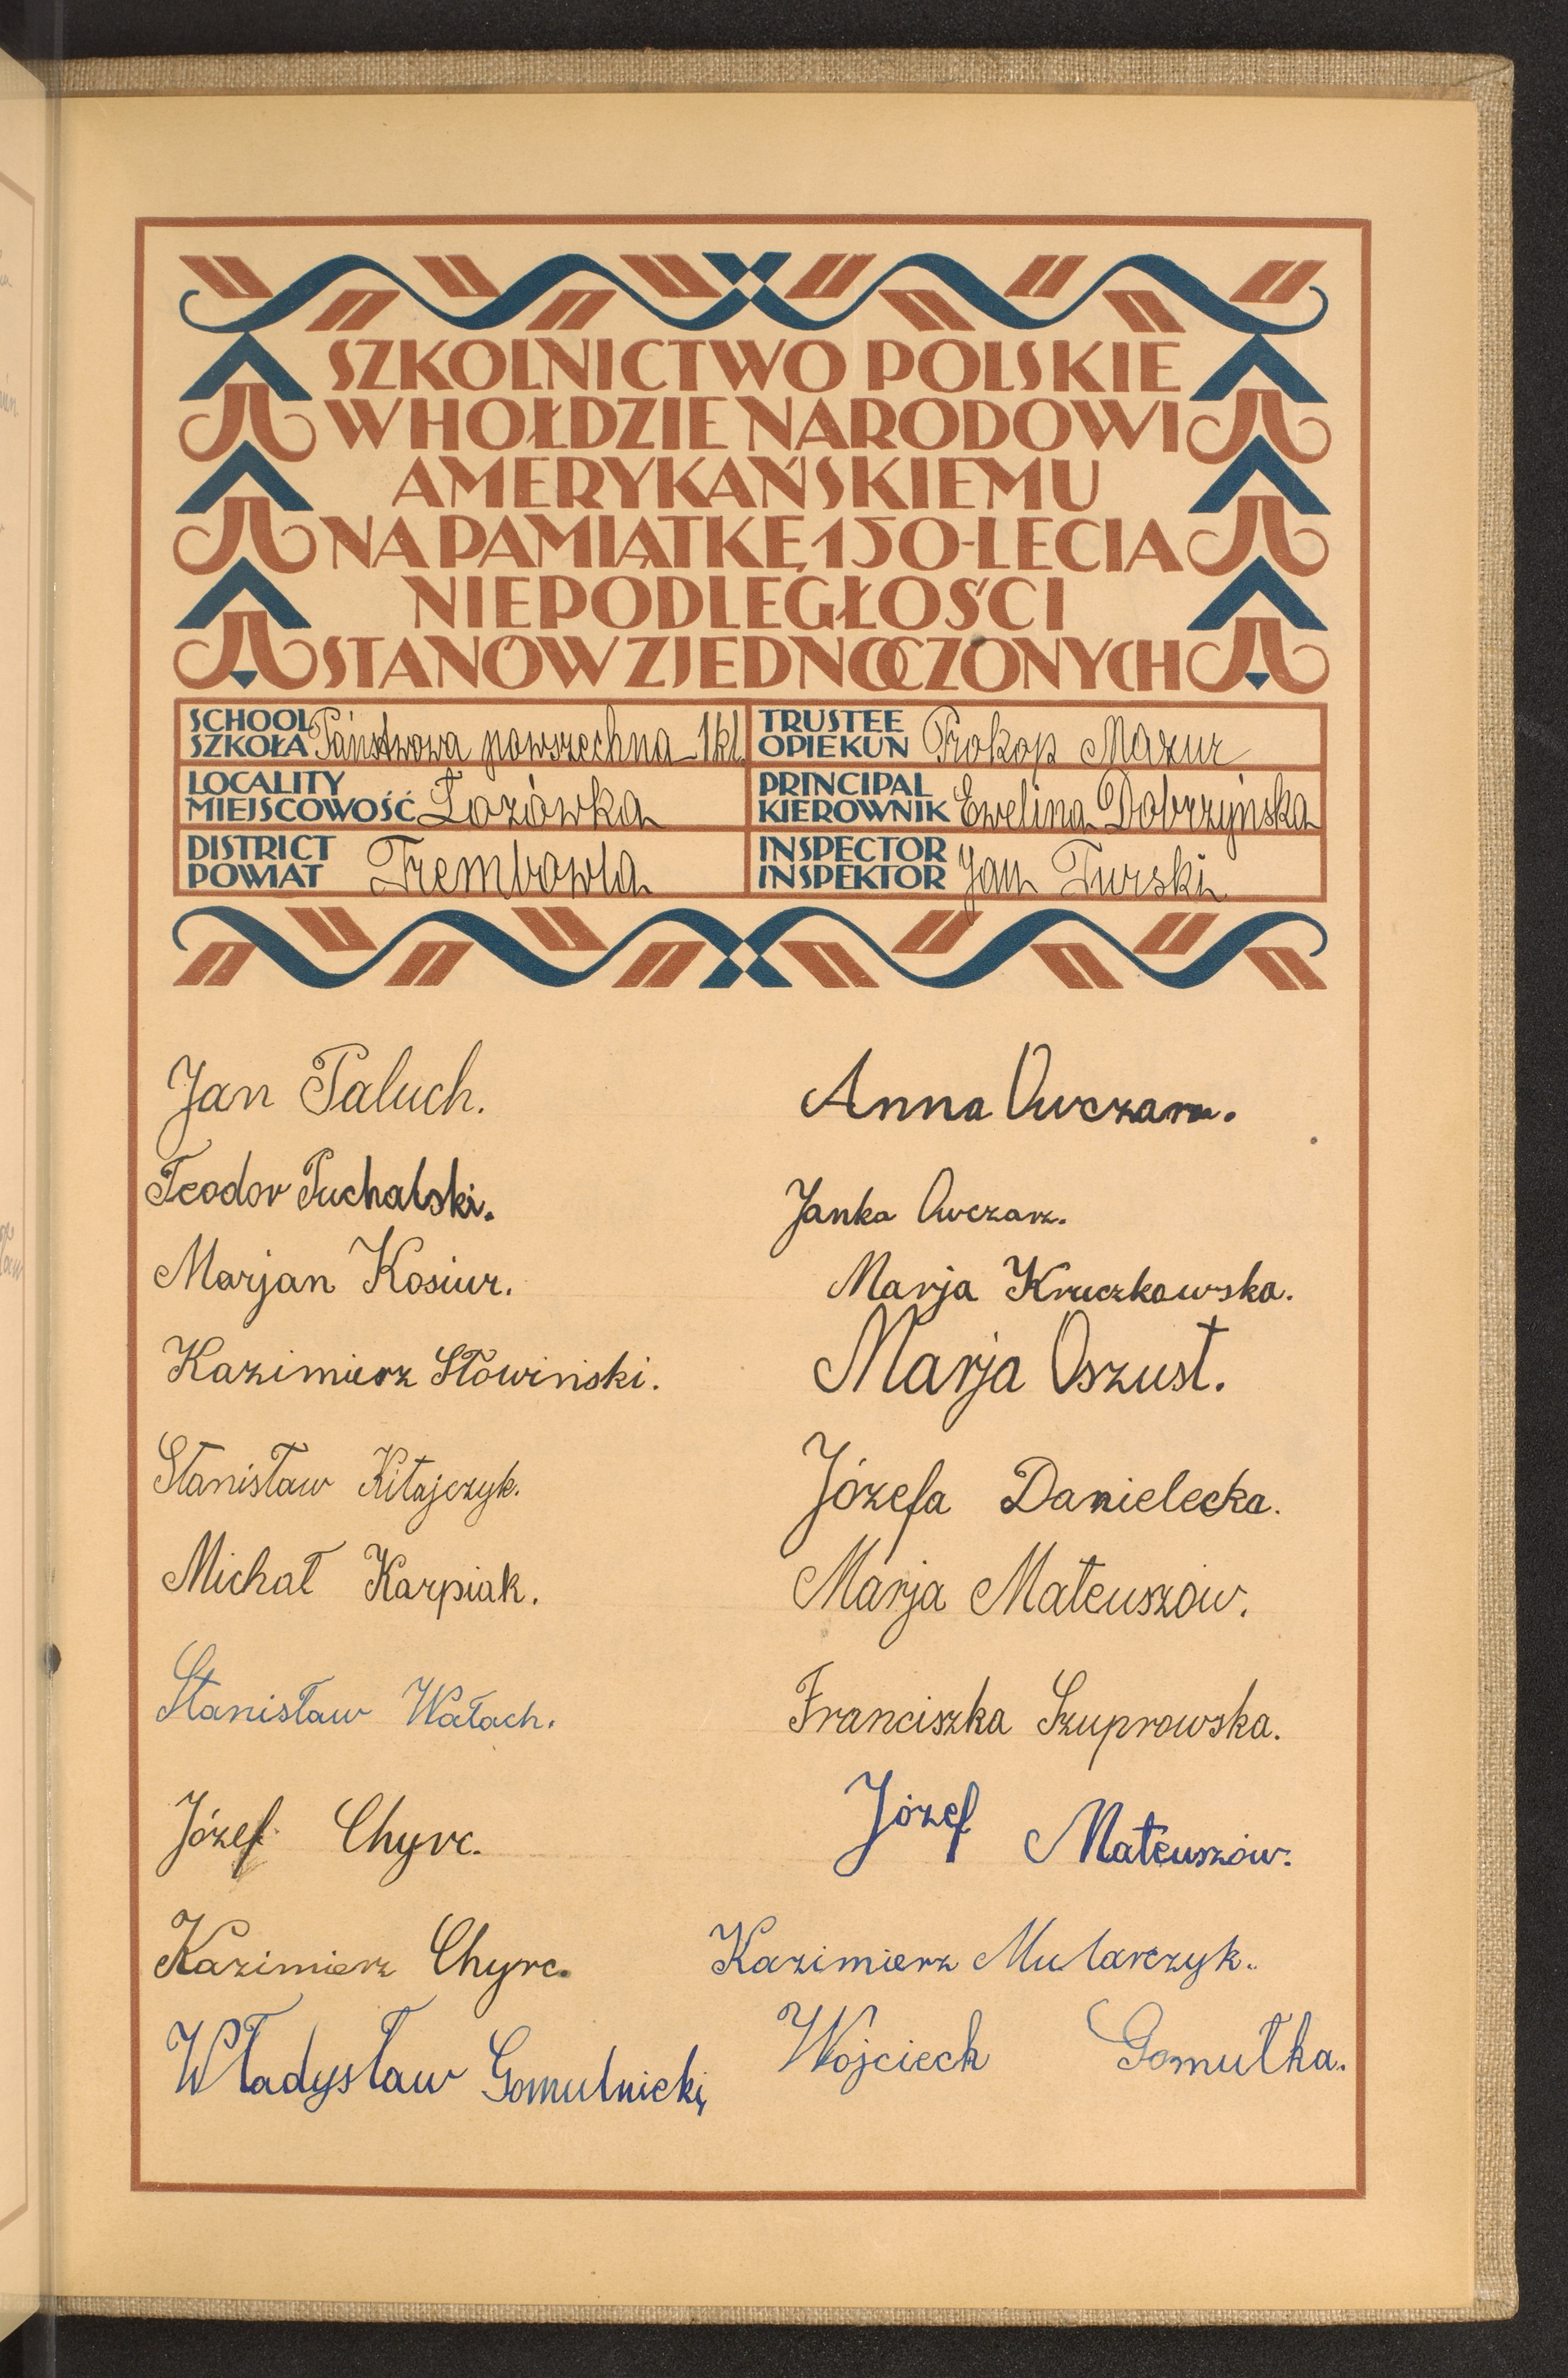 SZKOLNICTWO POLSKIE
W HOŁDZIE NARODOWI
AMERYKAŃSKIEMU
NA PAMIĄTKĘ 150-LECIA
NIEPODLEGŁOŚCI
STANÓW ZJEDNOCZONYCH
SCHOOL SZKOŁA Państwowa powszechna 1 kl.
TRUSTEE OPIEKUN Prokop Mazur
LOCALITY MIEJSCOWOŚĆ Łozówka
PRINCIPAL KIEROWNIK Ewelina Dobrzyńska
DISTRICT POWIAT Trembowla
INSPECTOR INSPEKTOR Jan Turski
Jan Paluch.
Teodor Puchalski.
Marjan Kosiur.
Kazimierz Słowiński.
Stanisław Kitajczyk.
Michał Karpiak.
Stanisław Wałach.
Józef Chyrc.
Kazimierz Chyrc.
Władysław Gomulnicki,
Anna Owczarz.
Janka Owczarz.
Marja Kruczkowska.
Marja Oszust.
Józefa Danielecka.
Marja Mateuszow.
Franciszka Szuprowska.
Józef Mateuszów.
Kazimierz Mularczyk.
Wojciech Gomułka.